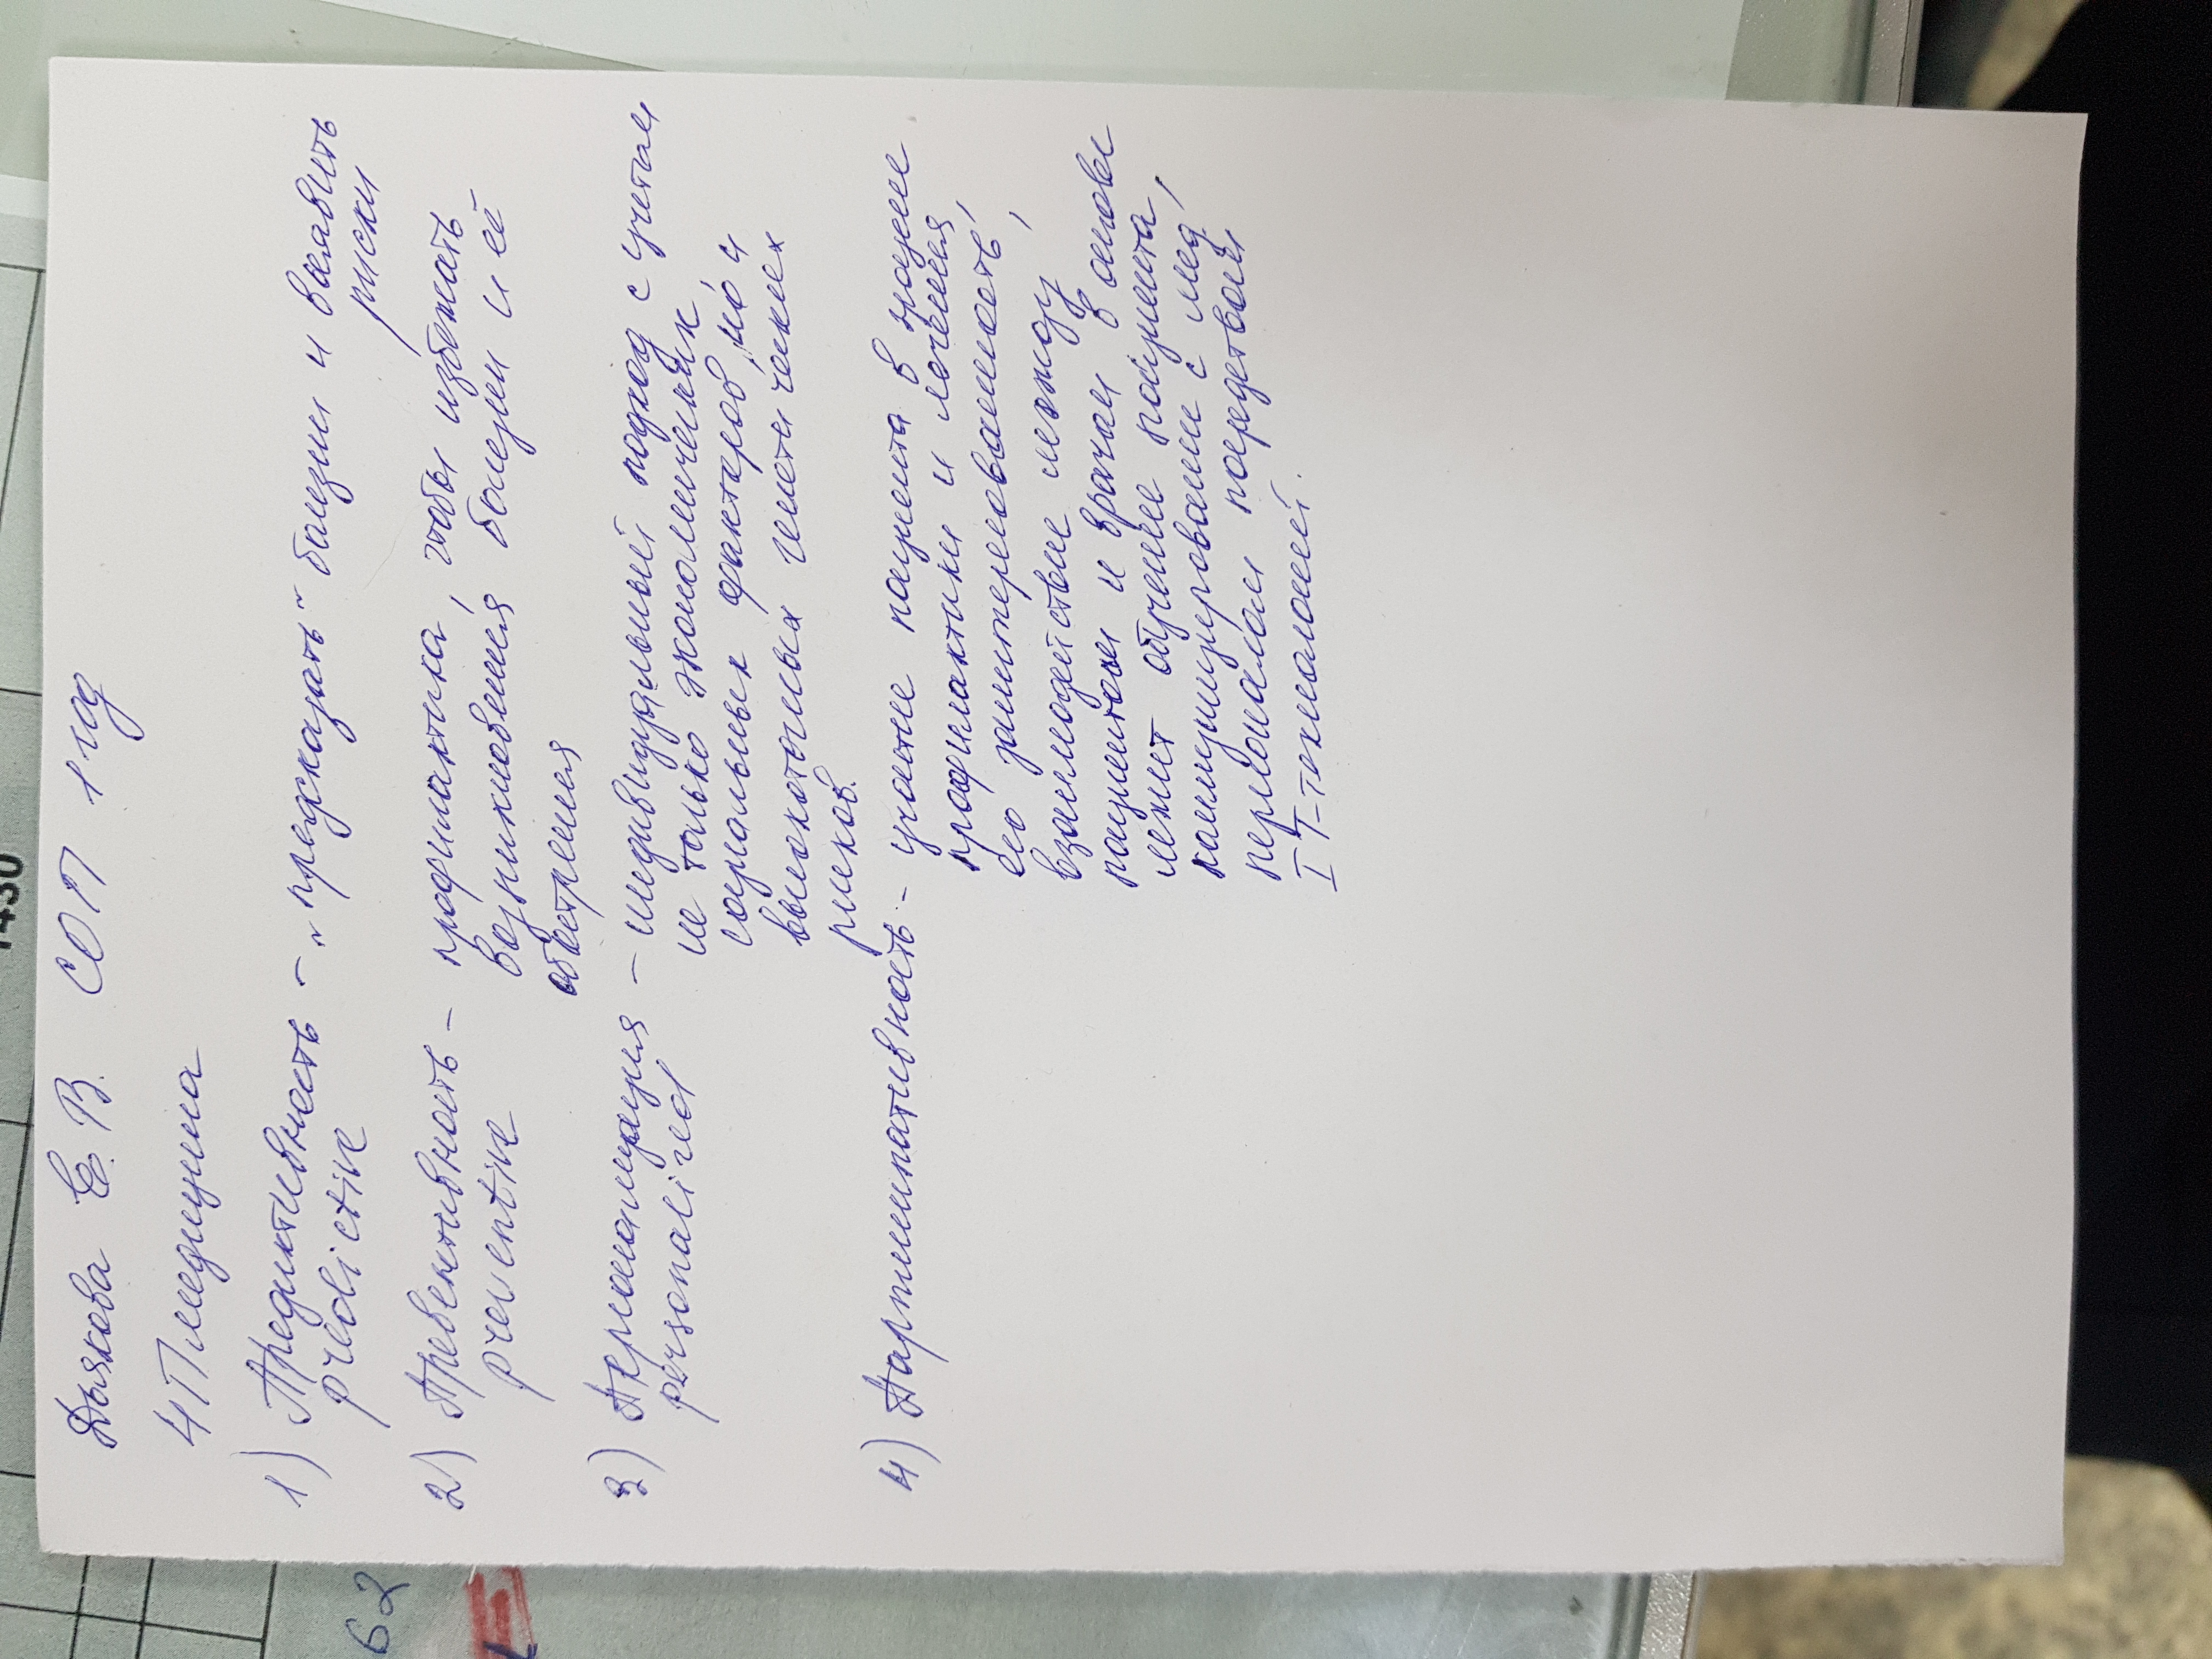 Дьякова Е. В. СОП 1 год
4П медицина
1) Предиктивность - "предсказать" болезни и выявить
predictive риски
2) Превентивность - профилактика, чтобы избежать
preventive возникновения болезни и её
обострения
3) Персонализация - индивидуальный подход с учетом
personalized не только экономических,
социальных факторов, но и
высокоточных генетических
рисков.
4) Партисипативность - участие пациента в
профилактики и лечения,
его заинтересованность,
взаимодействие между
пациентом и врачом, в основе
лежит обучение пациента,
коммуницирование с мед.
персоналом посредством
IT-технологий.
1430
62